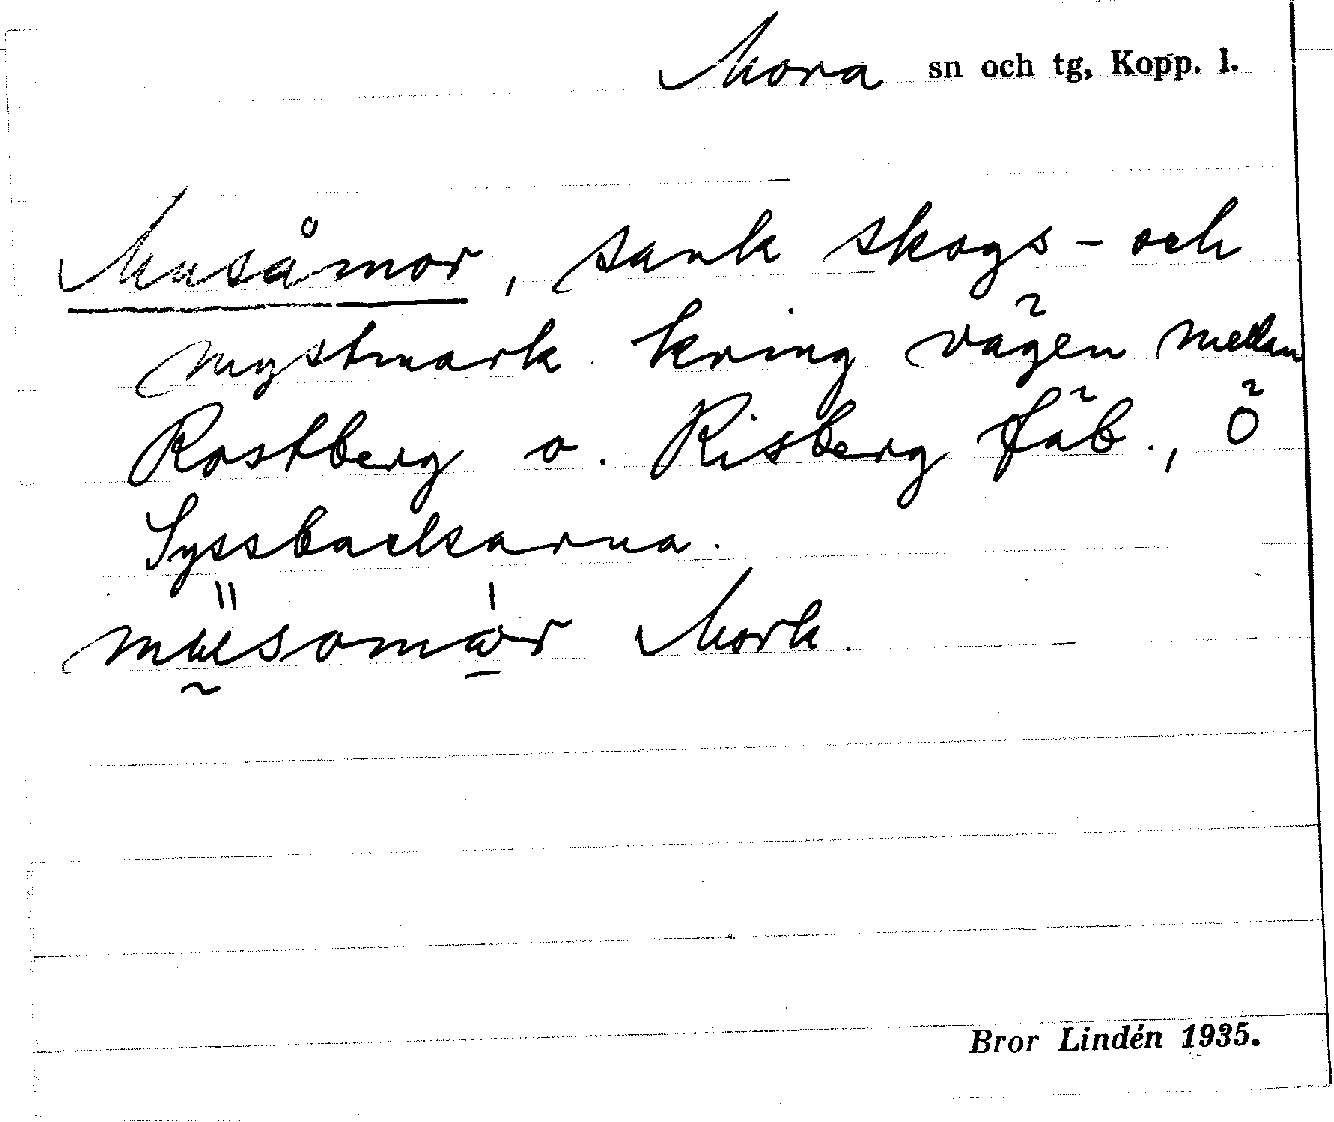 Mora sn och tg, Kopp. l.
Musåmor, sank skogs- och
myrtmark kring vägen mellan
Rostberg o. Risberg fäb., Ö
Syssbackarna.
Mork.
Bror Lindén 1935.